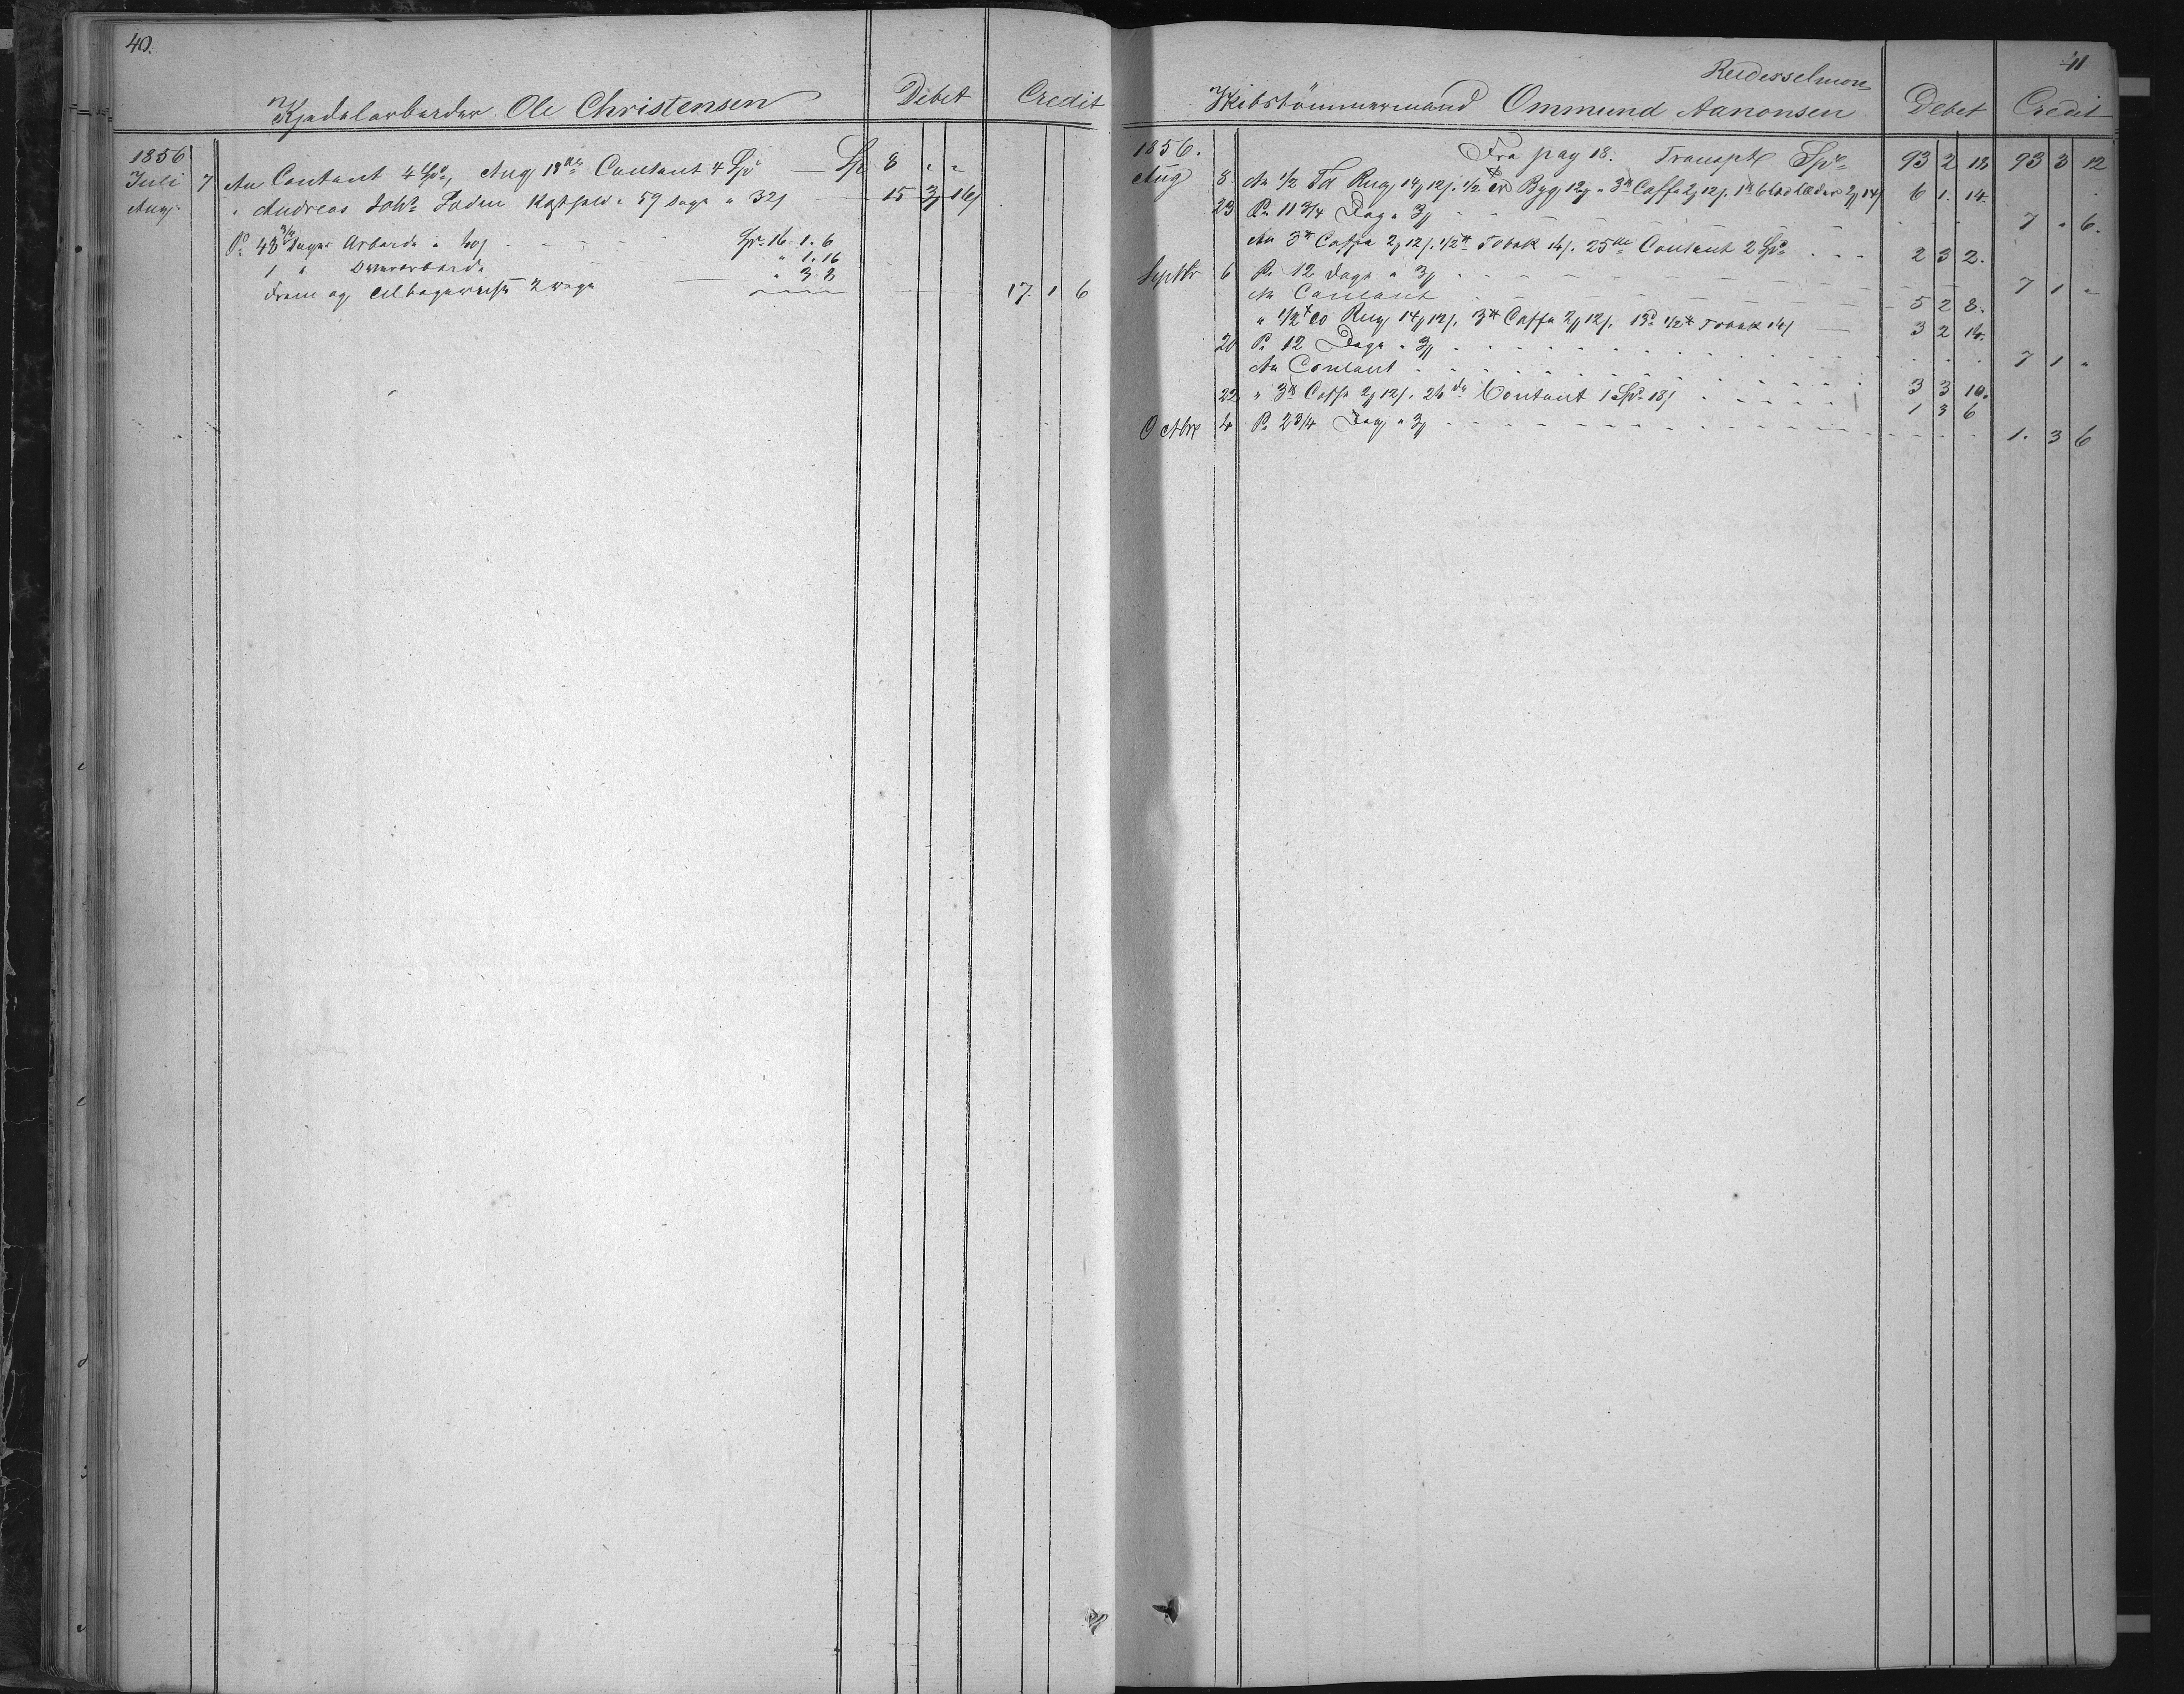 40.
Kjedelarbeider Ole Christensen Debet Credit
1856
Juli 7 An Contant 4 Spd, Aug 18de Contant 4 Spd — Sp 8 " "
Aug. " Andreas Kostpenge 59 Dage a 32 15 3 16
Pr 43 3/4 Dages Arbeide a Sp. 16. 1. 6
1 " Overarbeide " 1. 16
Frem og Tilbagereise 2 Dage " 3. 8 17. 1 6
41
Reidesselmoen
Skibstömmermand Ommund Aanonsen Debet Credit
1856. Fra pag 18. Transpt Spd 93 2 18 93 3 12
Aug 8 An 1/2 Td Rug 14 12. 1/2 Td Byg 12 " 3 # Caffe 2 12. 1 # 2 14 6 1. 14.
23 Pr 11 3/4 Dag a 3 7 " 6.
An 3 # Caffe 2 12. 1/2 # Tobak 14. 25de Contant 2 Spd 2 3 2.
Septbr 6 Pr 12 Dage a 3 7 1 "
An Contant 5 2 8.
" 1/2 Td Rug 14 12. 3 # Caffe 2 12. 13d 1/2 # Tobak 14 3 2 14.
20 Pr 12 Dage a 3 7 1 "
An Contant 3 3 10.
22 " 3 # Caffe 2 12. 24de Contant 1 Spd 18 1 3 6
Octbr 4 Pr 2 3/4 Dag a 3 1. 3 6